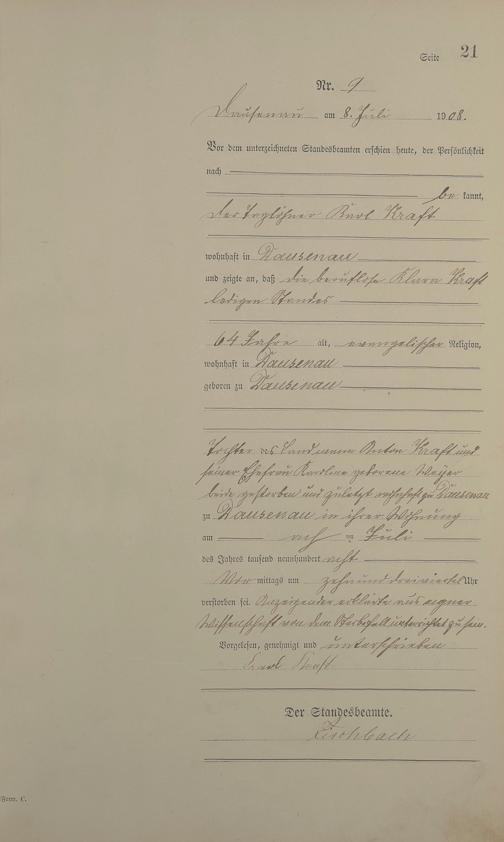 Seite 21
Nr. 9
Dausenau am 8. Juli 1908.
Vor dem unterzeichneten Standesbeamten erschien heute, der Persönlichkeit
nach
be kannt,
der Taglöhner Karl Kraft
wohnhaft in Dausenau
und zeigte an, daß die berufslose Klara Kraft
ledigen Standes
64 Jahre alt, evangelischer Religion,
wohnhaft in Dausenau
geboren zu Dausenau
Tochter des Landmann Anton Kraft und
seiner Ehefrau Karoline geborene
beide gestorben und zuletzt wohnhaft zu Dausenau
zu Dausenau in ihrer Wohnung
am Juli
des Jahres tausend neunhundert acht
Vor mittags um zehn und dreiviertel Uhr
verstorben sei. Anzeigender erklärte aus eigner
Wissenschaft von dem Sterbefall unterrichtet zu sein.
Vorgelesen, genehmigt und unterschrieben
Karl Kraft
Der Standesbeamte.
Form. C.